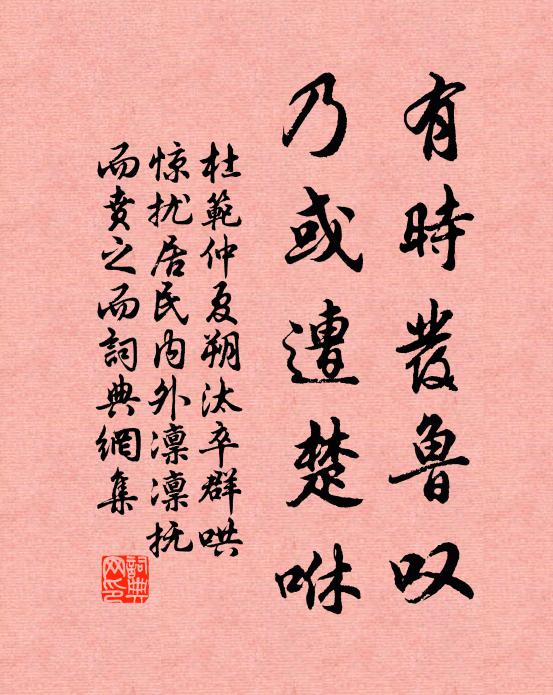 有時發魯叹
乃或遭楚咻
杜範仲夏朔汰卒群哄
惊扰居民内外凛凛抚
而贲之而詞典網集
詞典网印